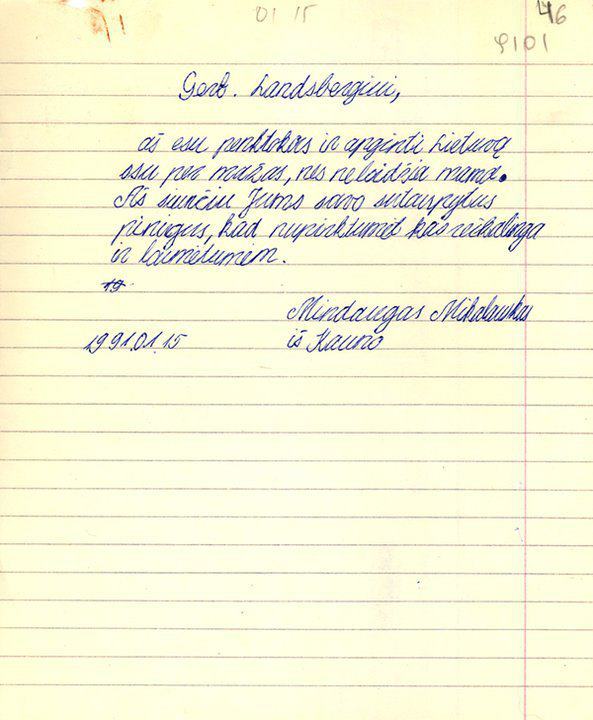 01 15
46
9101
Gerb. Landsbergiui,
aš esu penktokas ir apginti Lietuvą
esu per mažas, nes neleidžia mama.
Aš siunčiu Jums savo sutaupytus
pinigus, kad nupirktumėt kas reikalinga
ir laimėtumėm.
19
Mindaugas Mikalauskas
1991.01.15 iš Kauno